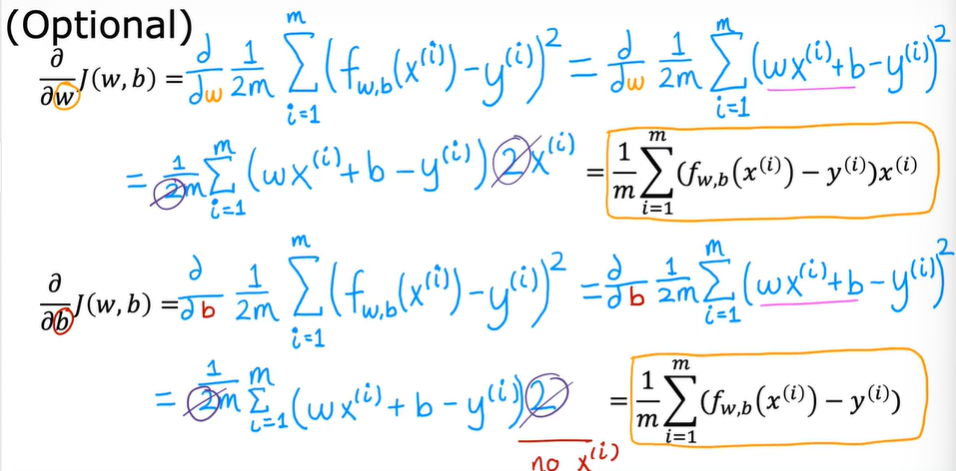 (Optional)
∂/∂w J(w, b) = d/dw 1/2m Σ_{i=1}^{m} (f_{w,b}(x^{(i)}) - y^{(i)})^2 = d/dw 1/2m Σ_{i=1}^{m} (wx^{(i)} + b - y^{(i)})^2
= 1/2m Σ_{i=1}^{m} (wx^{(i)} + b - y^{(i)}) 2x^{(i)} = 1/m Σ_{i=1}^{m} (f_{w,b}(x^{(i)}) - y^{(i)})x^{(i)}
∂/∂b J(w, b) = ∂/∂b 1/2m Σ_{i=1}^{m} (f_{w,b}(x^{(i)}) - y^{(i)})^2 = ∂/∂b 1/2m Σ_{i=1}^{m} (wx^{(i)} + b - y^{(i)})^2
= 1/2m Σ_{i=1}^{m} (wx^{(i)} + b - y^{(i)}) 2 = 1/m Σ_{i=1}^{m} (f_{w,b}(x^{(i)}) - y^{(i)})
no x^{(i)}